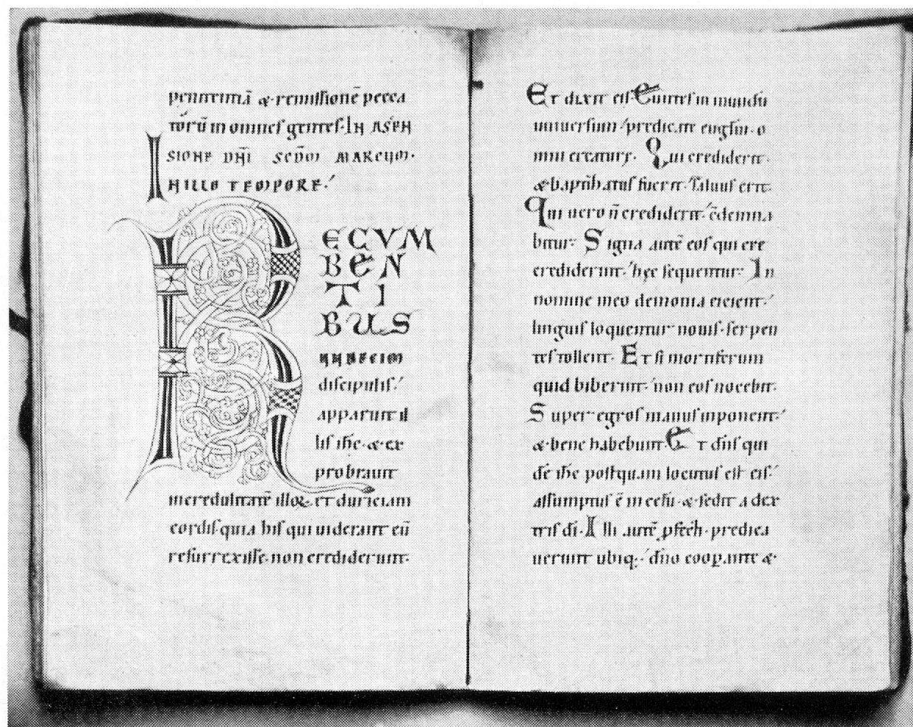 penitentiā & remissionē pecca
torū in omnes gentes. IN ASCEN
SIONE DN̄I SCD̄M MARCUM.
IN ILLO TEMPORE.
RECUM
BEN
TI
BUS
UNDECIM
discipulis.
apparuit il
lis ihc. & ex
probrauit
incredulitatē illoꝝ. et duriciam
cordis quia his qui uiderant eū
resurrexisse. non crediderunt.
Et dixit eis. Euntes in mundū
uniuersum predicate eugłm. o
mni creature. Qui crediderit
& baptizatus fuerit. saluus erit.
Qui uero n̄ crediderit. cōdemna
bitur. Signa autē eos qui cre
crediderint. hec sequentur. In
nomine meo demonia eicient.
linguis loquentur nouis. serpen
tes tollent. Et si mortiferum
quid biberint. non eos nocebit.
Super egros manus inponent.
& bene habebunt. Et dn̄s qui
dē ihc postquam locutus est eis.
assumptus ē in celū. & sedit a dex
tris dī. Illi autē pfecti. predica
uerunt ubiq;. dn̄o coopante &